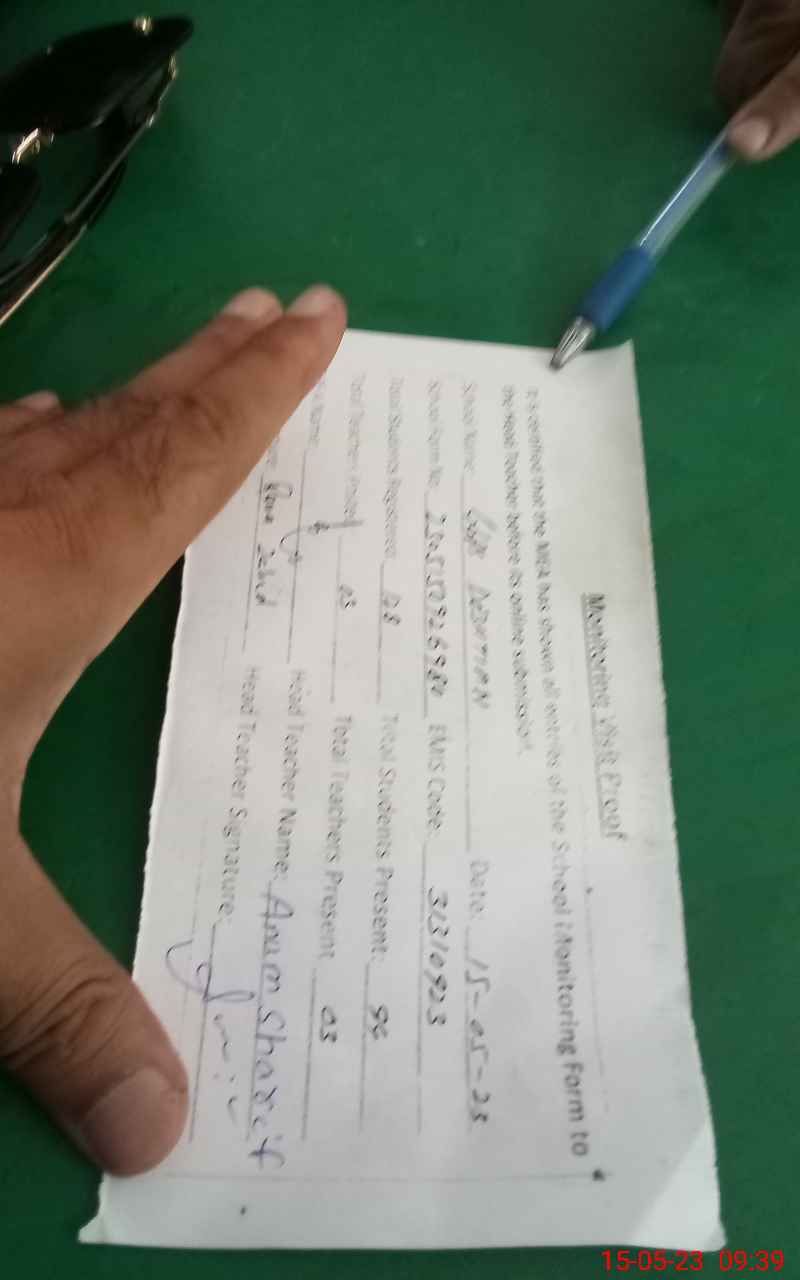 Monitoring Visit Proof
It is certified that the MEA has shown all entries of the School Monitoring Form to
the Head Teacher before its online submission.
School Name: Date: 15-05-23
School Form No. EMIS Code: 31310923
Total Students Registered: 128 Total Students Present: 96
Total Teachers 03 Total Teachers Present 03
Name: Head Teacher Name: Anum Sharif
Head Teacher Signature:
15-05-23 09:39